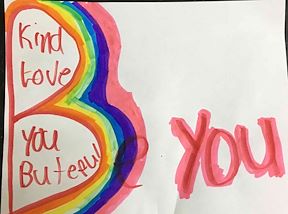 Kind
Love
YOU
Buteful
Be YOU